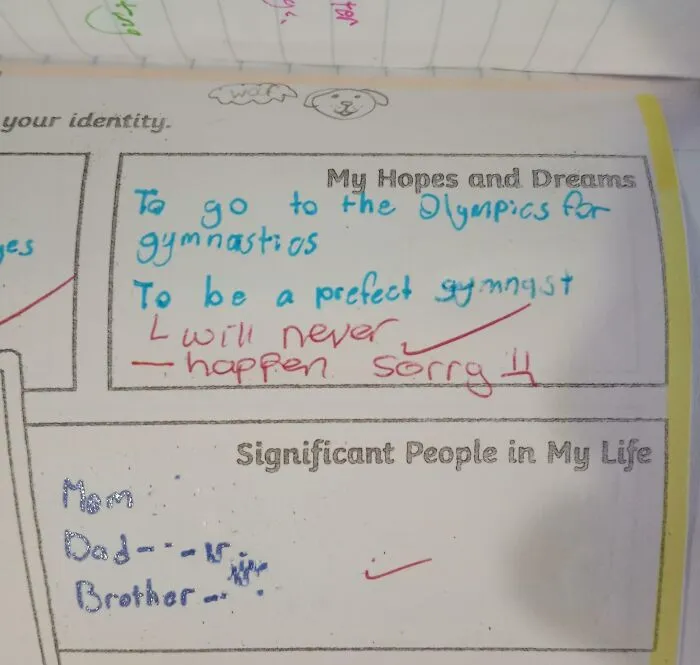 wolf
your identity.
My Hopes and Dreams
To go to the Olympics for
gymnastics
To be a prefect gymnast
will never
happen sorry
Significant People in My Life
Mom
Dad
Brother